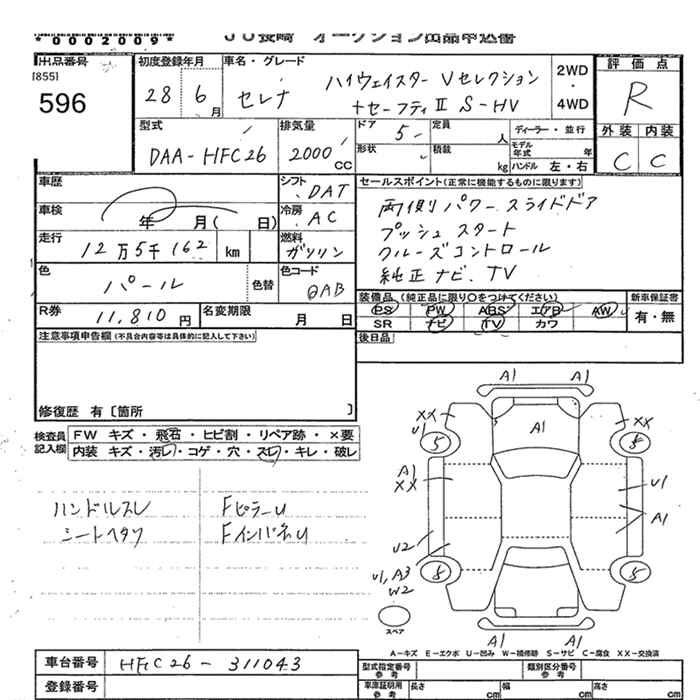 *0002009*
JU長崎 オークション出品申込書
出品番号 初度登録年月 車名・グレード 評価点
[855]
596
28 6月 セレナ ハイウェイスター Vセレクション
+セーフティⅡ S-HV
2WD・4WD
R
型式 排気量 ドア 5 定員 人 ディーラー・並行 外装 内装
DAA-HFC26 2000cc 形状 積載 kg モデル年式 年 C C
ハンドル 左・右
車歴 シフト DAT セールスポイント(正常に機能するものに限ります)
車検 年 月( 日) 冷房 AC 両側パワースライドドア
走行 12万5千162 km 燃料 ガソリン プッシュスタート
クルーズコントロール
色 パール 色替 色コード QAB 純正ナビ.TV
R券 11,810円 名変期限 月 日
装備品(純正品に限り○をつけてください) 新車保証書
PS PW ABS エアB AW 有・無
SR ナビ TV カワ
注意事項申告欄(不具合内容等は具体的に記入して下さい) 後日品
修復歴 有〔箇所 〕
検査員記入欄 FW キズ・飛石・ヒビ割・リペア跡・×要
内装 キズ・汚レ・コゲ・穴・スレ・キレ・破レ
ハンドルスレ FピラーU
シートヘタリ FインパネU
A1 A1
XX XX
U1
5 A1 5
A1 U1
XX
A1
U2
U1, A3
W2
5 5
スペア
A1 A1
A-キズ E-エクボ U-凹み W-補修跡 S-サビ C-腐食 XX-交換済
車台番号 HFC26-311043
登録番号
型式指定番号 参考 類別区分番号 参考
車庫証明用 参考 長さ cm 幅 cm 高さ cm